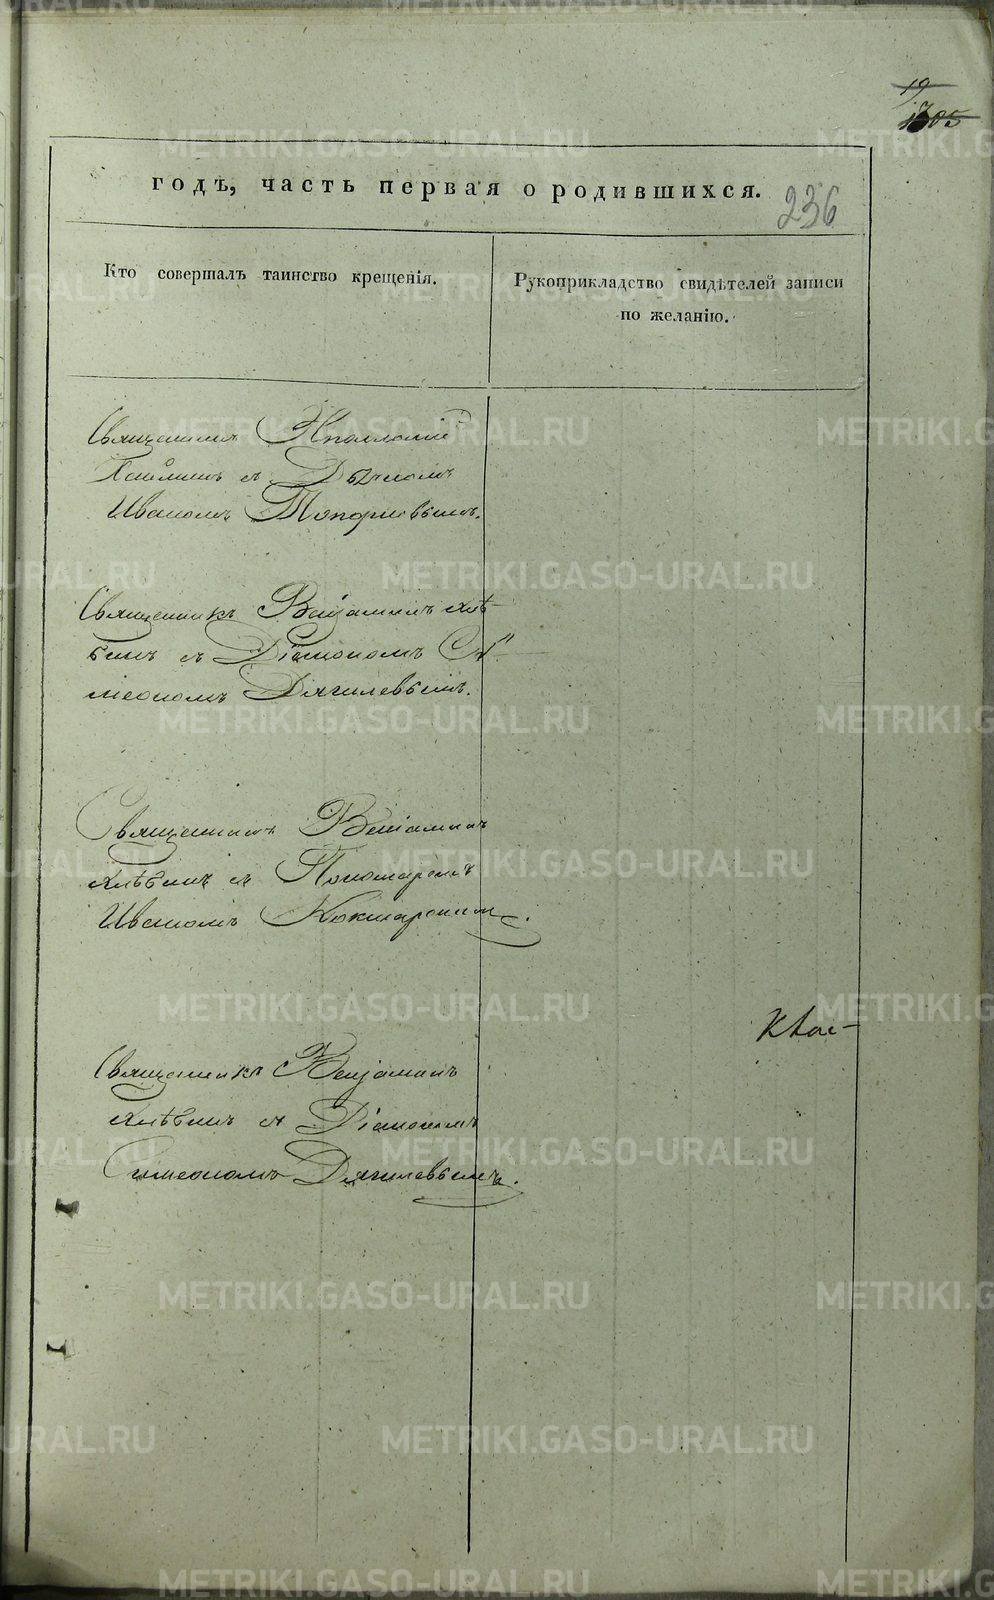 19
годъ, часть первая о родившихся.
236
Кто совершалъ таинство крещенія.
Рукоприкладство свидѣтелей записи
по желанію.
Священникъ
съ
Иваномъ Топорковымъ.
Священникъ Веніаминъ Хлѣ-
бинъ съ Діакономъ Си-
меономъ Дягилевымъ.
Священникъ Веніаминъ
Хлѣбинъ съ Пономаремъ
Иваномъ Кокшаровымъ.
Священникъ Веніаминъ
Хлѣбинъ съ Діакономъ
Симеономъ Дягилевымъ.
METRIKI.GASO-URAL.RU